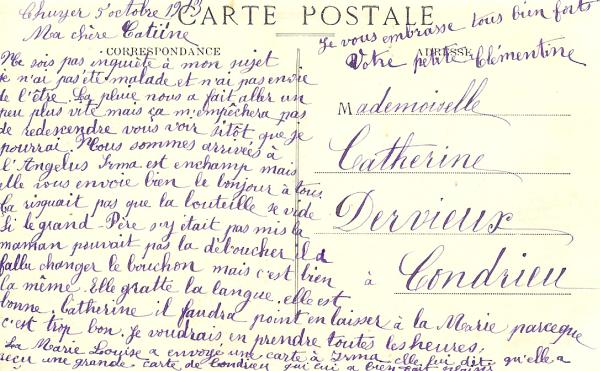 Chuyer 5 octobre
CARTE POSTALE
Ma chère Catiine
CORRESPONDANCE
ADRESSE
Je vous embrasse tous bien forts
Votre petite Clémentine
Ne sois pas inquiète à mon sujet
je n'ai pas été malade et n'ai pas envie
de l'être. La pluie nous a fait aller un
peu plus vite mais ça m'empêchera pas
de redescendre vous voir sitôt que je
pourrai. Nous sommes arrivées à
l'Angelus Irma est enchamp mais
elle vous envoie bien le bonjour à tous
Ça risquait pas que la bouteille se vide
Si le grand-Père s'y était pas mis la
maman pouvait pas la déboucher il a
fallu changer le bouchon mais c'est bien
la même. Elle gratte la langue, elle est
bonne. Catherine il faudra point en laisser à la Marie parceque
c'est trop bon. Je voudrais en prendre toutes les heures.
La Marie Louise a envoyé une carte à Irma elle lui dit qu'elle a
reçu une grande carte de Condrieu qui lui a bien fait plaisir
Mademoiselle
Catherine
Dervieux
à Condrieu